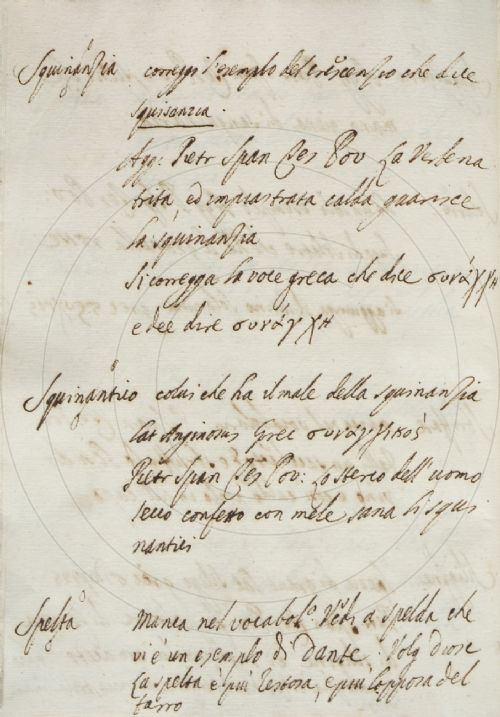 Squinanzia correggi l'esempio del Crescenzio che dice
squisanzia.
Agg: Pietr Span Tes Pov La Verbena
trita ed impiastrata calda guarisce
la squinanzia
Si corregga la voce greca che dice συνάγγη
e dee dire συνάγχη
Squinantico colui che ha il male della squinanzia
Lat Anginosus Grec συναγγικός
Pietr Span Tes Pov: Lo sterco dell'uomo
secco confetto con mele sana li squi
nantici
Spelta Manca nel vocabol.o Vedi a spelda che
vi è un esempio di Dante. Volg Diosc
La spelta è più testosa, e più lopposa del
farro